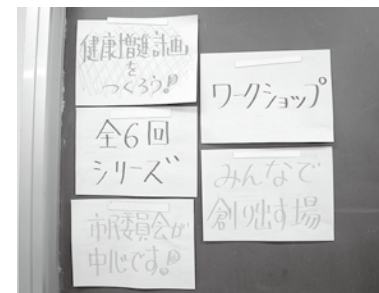 健康増進計画
を
つくろう!!
全6回
シリーズ
市民委員会が
中心です!!
ワークショップ
みんなで
創り出す場